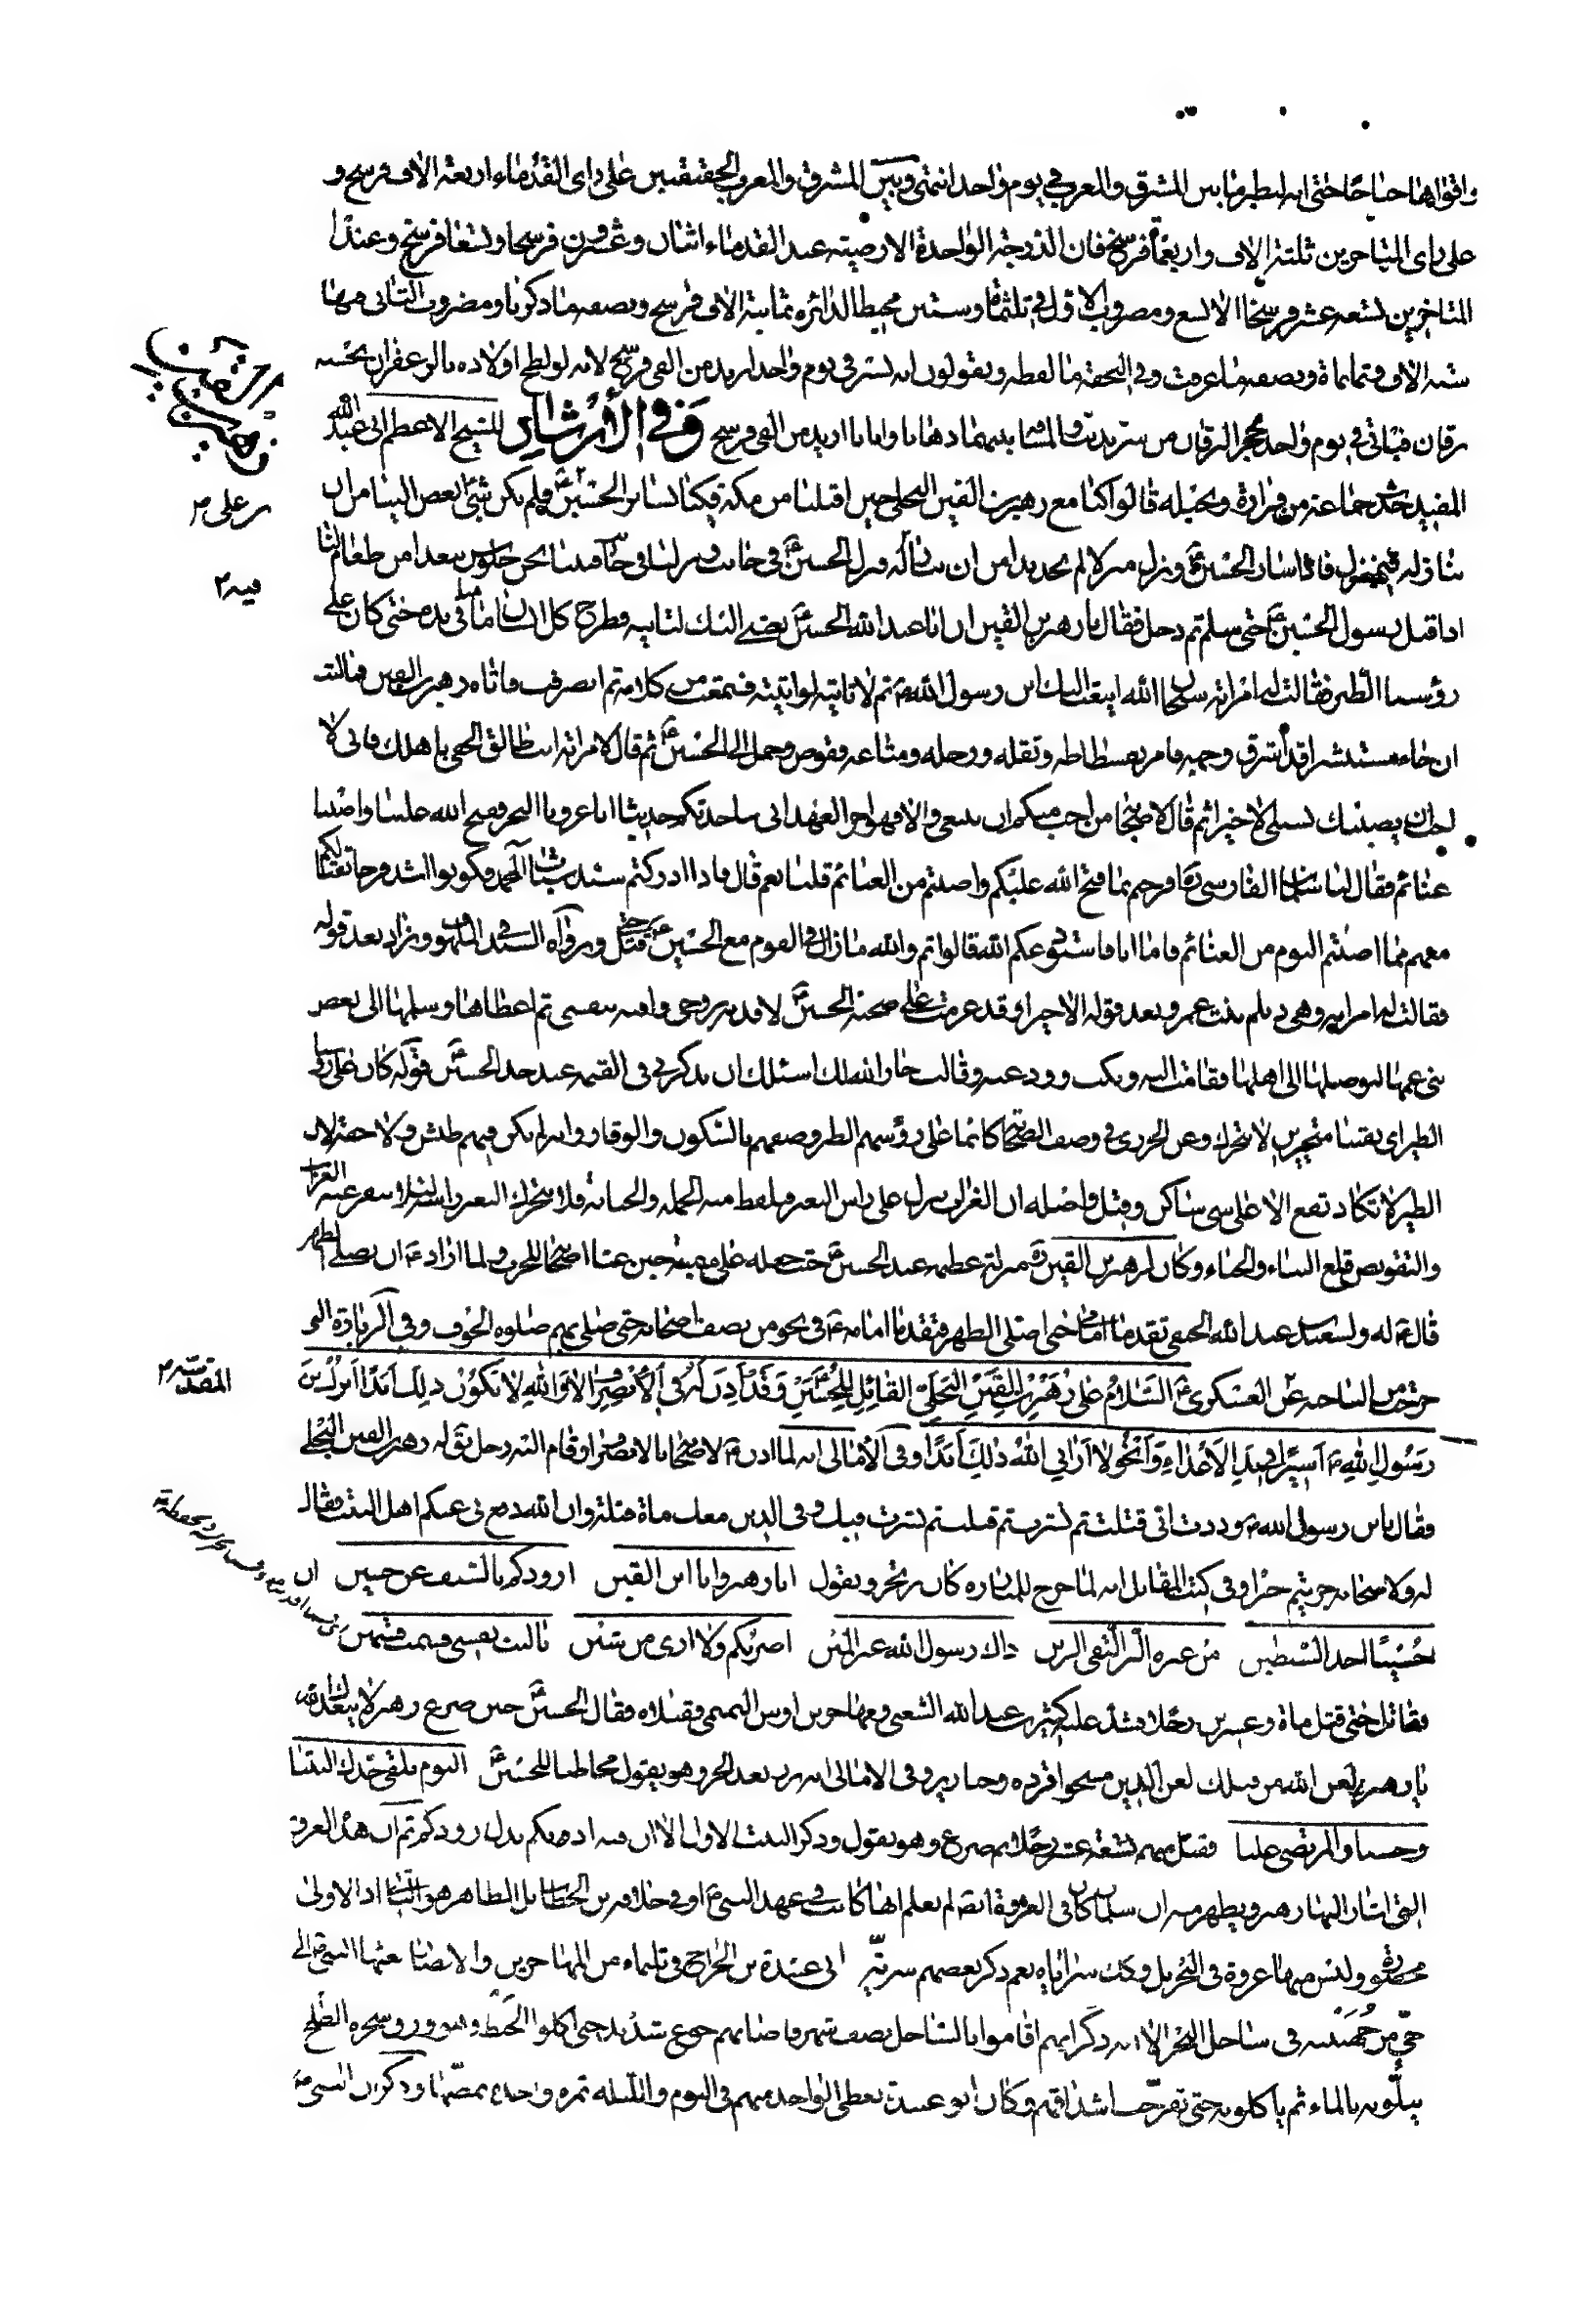 واقواها جناحًا حتى انه ليطير ما بين المشرق والمغرب في يوم واحد انتهى وبين المشرق والمغرب الحقيقيين على راى القدماء اربعة الاف فرسخ و
على راى المتاخرين ثلثة الاف واربعمائة فرسخ فان الدرجة الواحدة الارضيته عند القدماء اثنان وعشرون فرسخا وتسعا فرسخ وعند
المتاخرين تسعة عشر فرسخا الا تسع ومضروب الاول في ثلثمائة وستين محيط الدائرة ثمانية الاف فرسخ ونصفه ما ذكرنا ومضروب الثاني فيها
ستة الاف وثمانمائة ونصفه ما عرفت وفي التحفة ما لفظه ويقولون انه يسير في يوم واحد ازيد من الفي فرسخ لانه لو لطخ اولاده بالزعفران بحسبه
يرقان فياتي في يوم واحد بحجر اليرقان من سرنديب والمسافة بينهما ذهابا وايابا ازيد من الفي فرسخ وَفي الأرشادِ للشيخ الاعظم ابي عبد الله
المفيد حدث جماعة من فزارة وبجيله قالوا كنا مع زهير بن القين البجلي حين اقبلنا من مكة فكنا نساير الحسين ع فلم يكن شئ ابغض الينا من ان
ننازله في منزل فاذا سار الحسين ع ونزل منزلا لم نجد بدا من ان ننازله فنزل الحسين ع في جانب ونزلنا في جانب فبينا نحن جلوس نتغدى من طعام لنا
اذ اقبل رسول الحسين ع حتى سلم ثم دخل فقال يا زهير بن القين ان ابا عبد الله الحسين ع بعثني اليك لتاتيه فطرح كل انسان منا ما في يده حتى كان على
رؤسنا الطير فقالت له امراته سبحان الله ايبعث اليك ابن رسول الله ص ثم لا تاتيه لو اتيته فسمعت من كلامه ثم انصرفت فاتاه زهير بن القين فما لبث
ان جاء مستبشرا قد اشرق وجهه فامر بفسطاطه وثقله ورحله ومتاعه فقوض وحمل الى الحسين ع ثم قال لامراته انت طالق الحقي باهلك فاني لا
احب ان يصيبك بسببي الا خيرا ثم قال لاصحابه من احب منكم ان يتبعني والا فهو اخر العهد اني ساحدثكم حديثا انا غزونا البحر ففتح الله علينا واصبنا
غنائم فقال لنا سلمان الفارسي ره افرحتم بما فتح الله عليكم واصبتم من الغنائم قلنا نعم قال فاذا ادركتم سيد شباب ال محمد فكونوا اشد فرحا بقتالكم
معهم مما اصبتم اليوم من الغنائم فاما انا فاستودعكم الله قالوا ثم والله ما زال في القوم مع الحسين ع حتى قتل ورواه السيد في اللهوف وزاد بعد قوله
فقالت له امراته وهي ديلم بنت عمرو وبعد قوله الا خيرا وقد عزمت على صحبة الحسين ع لافديه بروحي واقيه بنفسي ثم اعطاها وسلمها الى بعض
بني عمها ليوصلها الى اهلها فقامت اليه وبكت وودعته وقالت خار الله لك اسئلك ان تذكرني في القيمة عند جد الحسين ع قوله كان على رؤسنا
الطير اي بقينا متحيرين لا نتحرك وعن الجزري في وصف الصحابة كانما على رؤسهم الطير وصفهم بالسكون والوقار وانه لم يكن فيهم طيش ولا خفة لان
الطير لا تكاد تقع الا على شئ ساكن وقيل واصله ان الغراب ينزل على راس البعير فيلقط منه الحلمة والحمنانة فلا يتحرك البعير راسه لئلا ينفر عنه الغراب
والتقويض قلع البناء والخباء وكان لزهير بن القين ره منزلة عظيمة عند الحسين ع حيث جعله على ميمنته حين عبا اصحابه للحرب ولما اراد ع ان يصلي الظهر
قال ع له ولسعيد بن عبد الله الحنفي تقدما امامي حتى اصلي الظهر فتقدما امامه ع في نحو من نصف اصحابه حتى صلى بهم صلوة الخوف وفي الزيارة التي
خرجت من الناحيه عن العسكري ع السَّلامُ على زُهَيْرِ بن القَيْنِ البَجَلِيّ القائِلِ لِلحُسَيْنِ وَقَدْ اَذِنَ لَهُ في الاِنْصِرافِ لا وَاللهِ لا يَكُونُ ذلِكَ اَبَدًا اَتْرُكُ بْنَ
رَسُولِ اللهِ ص اَسيرًا في يَدِ الاَعْداءِ وَاَنْجُو لا اَرانِي اللهُ ذلِكَ اَبَدًا وفي الأمالي انه لما اذن ع لاصحابه بالانصراف قام اليه رجل يقال له زهير بن القين البجلي
فقال يا بن رسول الله ص وددت اني قتلت ثم نشرت ثم قتلت ثم نشرت فيك وفي الذين معك مائة قتلة وان الله دفع بي عنكم اهل البيت فقال
له ولاصحابه جزيتم خيرا وفي كتب المقاتل انه لما خرج للمبارزه كان يرتجز ويقول انا زهير وانا ابن القين اذودكم بالسيف عن حسين ان
حُسَيْنًا احد السبطين من عترة البر التقي الزين ذاك رسول الله غير المين اضربكم ولا ارى من شين يا ليت نفسي قسمت قسمين
فقاتل حتى قتل مائة وعشرين رجلا فشد عليه كثير بن عبد الله الشعبي ومهاجر بن اوس التميمي فقتلاه فقال الحسين ع حين صرع زهير لا يبعدك الله
يا زهير ولعن الله من قتلك لعن الذين مسخوا قردة وخنازير وفي الامالي انه برز بعد الحر وهو يقول مخاطبا للحسين ع اليوم نلقى جدك النبيا
وحسنا والمرتضى عليا فقتل منهم تسعة عشر رجلا ثم صرع وهو يقول وذكر البيت الاول الا ان فيه اذبكم بدل اذودكم ثم ان هذه الغزوة
التي اشار اليها زهير ويظهر منه ان سلمان كان في الغزوة ايضا لم نعلم انها كانت في عهد النبي ص او في خلافة بن الخطاب بل الظاهر هو الثاني اذ الاولى
محصورة وليس فيها غزوة في البحر بل وكذا سراياه نعم ذكر بعضهم سرية ابي عبيدة بن الجراح في ثلثمائة من المهاجرين والانصار بعثها النبي ص الى
حيّ من جُهَينة في ساحل البحر الا انه ذكر انهم اقاموا بالساحل نصف شهر فاصابهم جوع شديد حتى اكلوا الخَبَط وهو ورق شجرة الطلح
يبلّونه بالماء ثم ياكلونه حتى تقرحت اشداقهم وكان ابو عبيدة يعطي الواحد منهم في اليوم والليلة تمرة واحدة يمصّها وذكر ان النبي ص
زهير بن القين
بن علي م
فيه ٢
المقدسة م